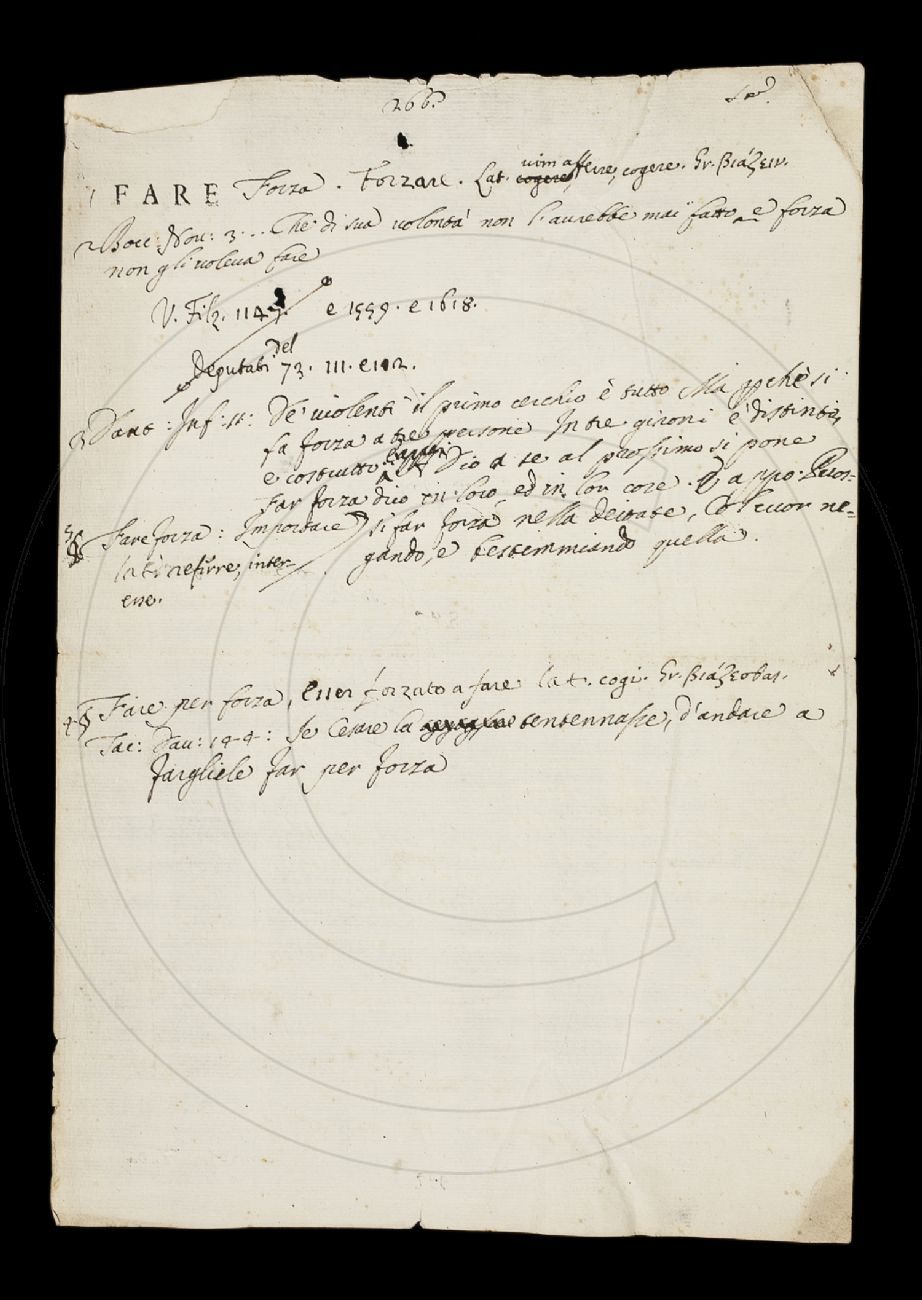 266.
FARE Forza. Forzare. Lat. cogere, vim afferre, cogere. Gr. βιάζειν.
2 Bocc. Nov: 3... Che di sua volontà non l'aurebbe mai fatto e forza
non gli voleva fare
V. Filz. 1147. e 1559. e 1618.
Deputati del 73. 111. e 112.
3 Dant: Inf: 11: De' violenti il primo cerchio è tutto Ma pchè si
fa forza a tre persone In tre gironi è distinto,
e costrutto. A Dio a se al prossimo si pone
Far forza dico in loro ed in lor cose. E appo: Puos-
si far forza nella deitate, Col cuor ne=
gando, e bestemmiando quella.
§ Fare forza: Importare
lat. referre, inter-
esse.
4 § Fare per forza, esser forzato a fare lat. cogi. Gr. βιάζεσθαι.
Tac: Dav: 14-4: Se Cesare la tentennasse, d'andare a
fargliele far per forza